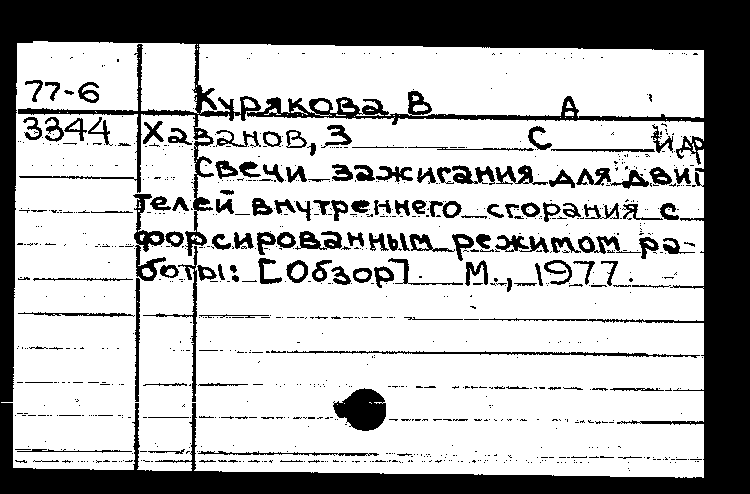 77-6 Курякова, В А
3344 Хазанов, З С и др
Свечи зажигания для двиг
телей внутреннего сгорания с
форсированным режимом ра-
боты: [Обзор]. М., 1977.